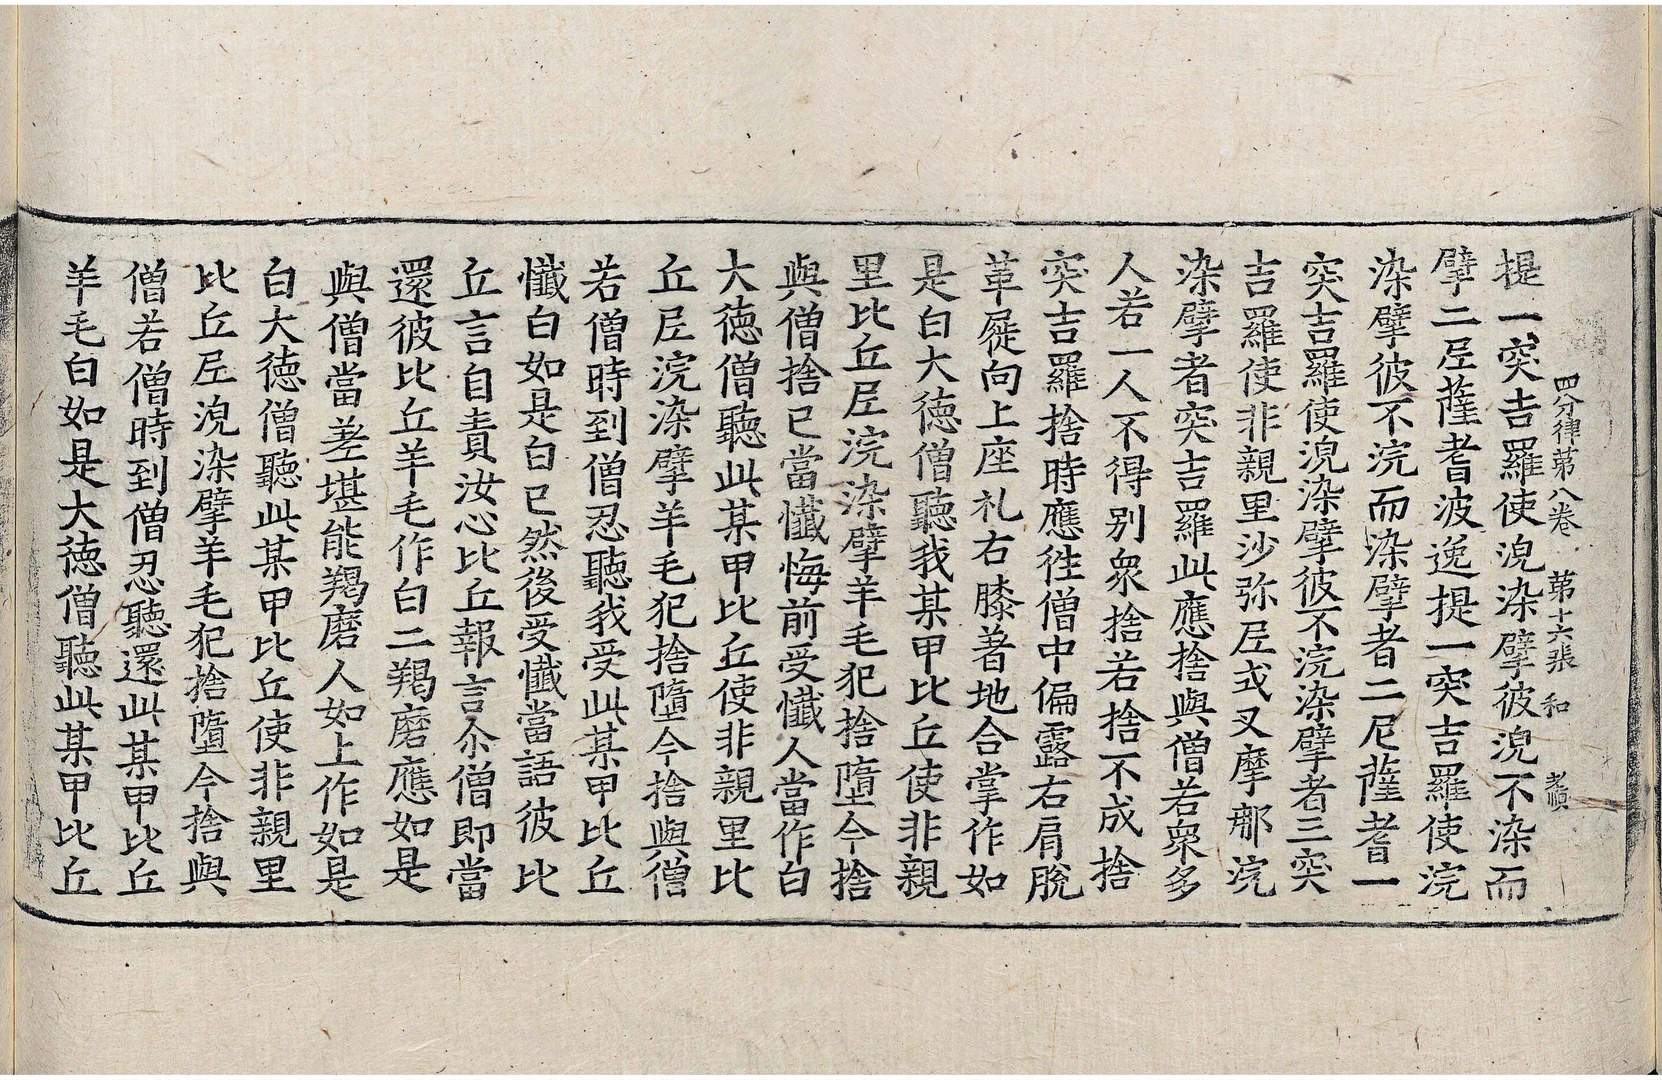 四分律第八卷 第十六張 和 老順
提一突吉羅使浣染擘彼浣不染而
擘二尼薩耆波逸提一突吉羅使浣
染擘彼不浣而染擘者二尼薩耆一
突吉羅使浣染擘彼不浣染擘者三突
吉羅使非親里沙弥尼式叉摩那浣
染擘者突吉羅此應捨與僧若衆多
人若一人不得別衆捨若捨不成捨
突吉羅捨時應徃僧中偏露右肩脫
革屣向上座礼右膝著地合掌作如
是白大徳僧聽我某甲比丘使非親
里比丘尼浣染擘羊毛犯捨墮今捨
與僧捨已當懺悔前受懺人當作白
大徳僧聽此某甲比丘使非親里比
丘尼浣染擘羊毛犯捨墮今捨與僧
若僧時到僧忍聽我受此某甲比丘
懺白如是白已然後受懺當語彼比
丘言自責汝心比丘報言尒僧即當
還彼比丘羊毛作白二羯磨應如是
與僧當差堪能羯磨人如上作如是
白大徳僧聽此某甲比丘使非親里
比丘尼浣染擘羊毛犯捨墮今捨與
僧若僧時到僧忍聽還此某甲比丘
羊毛白如是大徳僧聽此某甲比丘